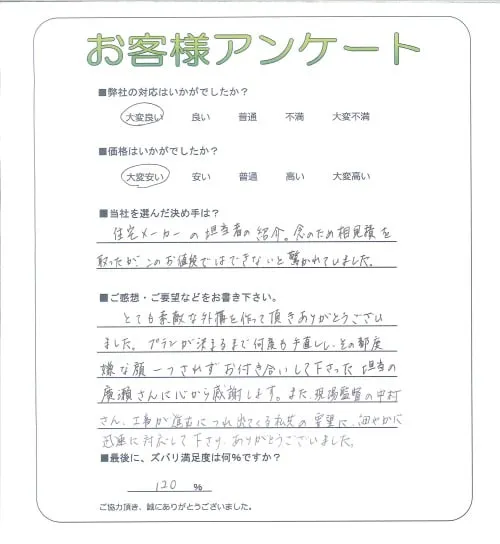 お客様アンケート
■弊社の対応はいかがでしたか？
大変良い 良い 普通 不満 大変不満
■価格はいかがでしたか？
大変安い 安い 普通 高い 大変高い
■当社を選んだ決め手は？
住宅メーカーの担当者の紹介。念のため相見積を
取ったが、このお値段ではできないと驚かれていました。
■ご感想・ご要望などをお書き下さい。
とても素敵な外構を作って頂きありがとうござい
ました。プランが決まるまで何度も手直しし、その都度
嫌な顔一つされずお付き合いして下さった担当の
廣瀬さんに心から感謝します。また、現場監督の中村
さん、工事が進むにつれ出てくる私共の要望に、細やかに
迅速に対応して下さり、ありがとうございました。
■最後に、ズバリ満足度は何％ですか？
120 ％
ご協力頂き、誠にありがとうございました。